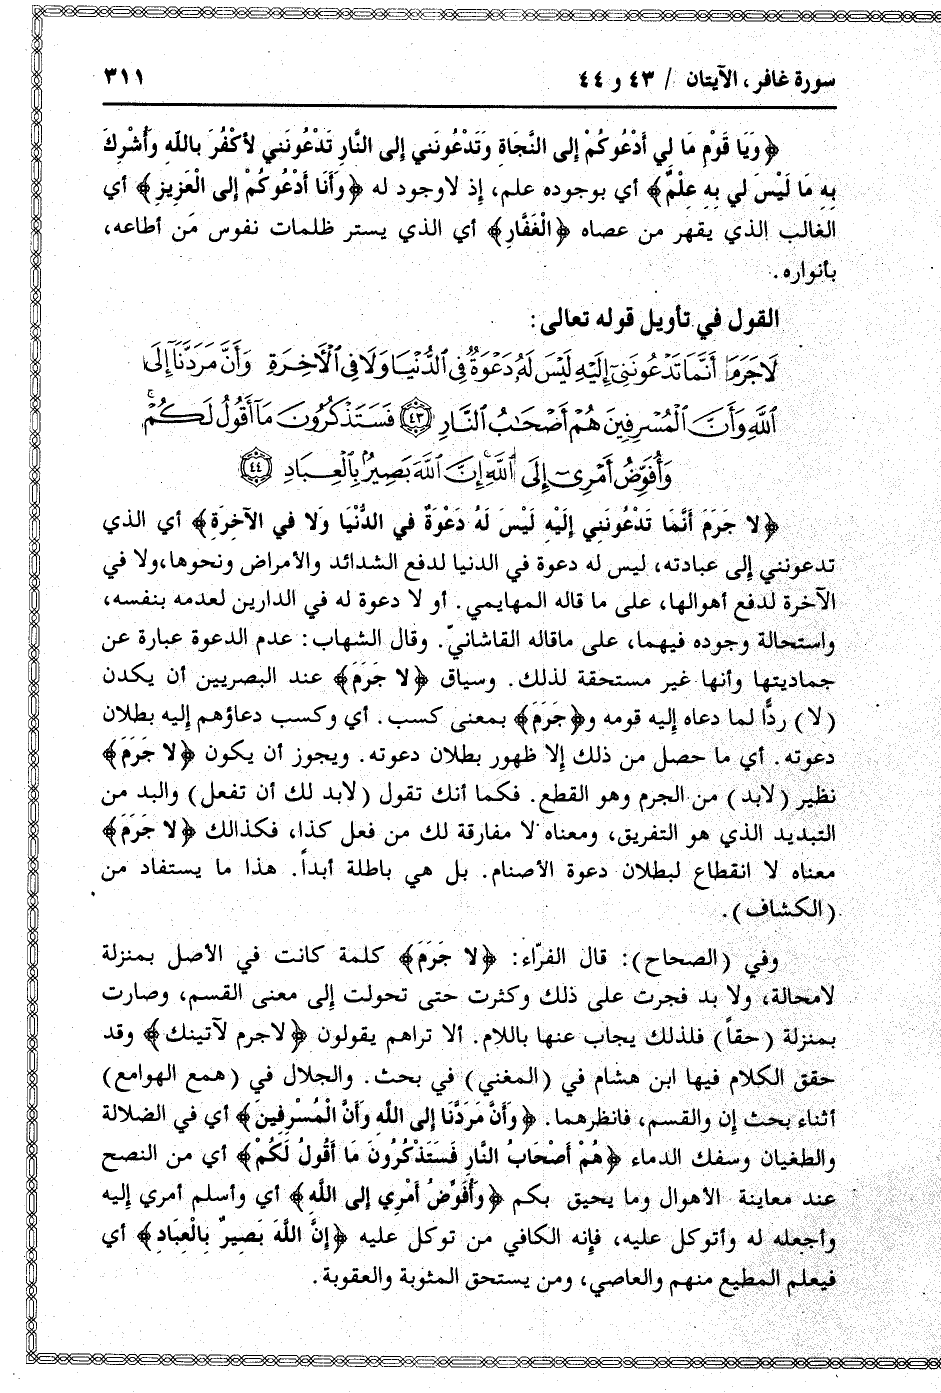 سورة غافر، الآيتان / ٤٣ و ٤٤
٣١١
﴿وَيَا قَوْمِ مَا لِي أَدْعُوكُمْ إلى النَّجَاةِ وَتَدْعُونَني إلى النَّارِ تَدْعُونَني لأكْفُرَ باللَّهِ وأُشْرِكَ
بِهِ مَا لَيْسَ لي بِهِ عِلْمٌ﴾ أي بوجوده علم، إذ لاوجود له ﴿وَأنَا أدْعُوكُمْ إلى الْعَزِيزِ﴾ أي
الغالب الذي يقهر من عصاه ﴿الْغَفَّارِ﴾ أي الذي يستر ظلمات نفوس مَن أطاعه،
بأنواره.
القول في تأويل قوله تعالى:
لَا جَرَمَ أَنَّمَا تَدْعُونَنِىٓ إِلَيْهِ لَيْسَ لَهُۥ دَعْوَةٌ فِى ٱلدُّنْيَا وَلَا فِى ٱلْأَخِرَةِ وَأَنَّ مَرَدَّنَآ إِلَى
ٱللَّهِ وَأَنَّ ٱلْمُسْرِفِينَ هُمْ أَصْحَٰبُ ٱلنَّارِ ٤٣ فَسَتَذْكُرُونَ مَآ أَقُولُ لَكُمْۚ
وَأُفَوِّضُ أَمْرِىٓ إِلَى ٱللَّهِۚ إِنَّ ٱللَّهَ بَصِيرٌۢ بِٱلْعِبَادِ ٤٤
﴿لا جَرَمَ أنَّمَا تَدْعُونَني إلَيْهِ لَيْسَ لَهُ دَعْوَةٌ في الدُّنْيَا وَلا في الآخِرَةِ﴾ أي الذي
تدعونني إلى عبادته، ليس له دعوة في الدنيا لدفع الشدائد والأمراض ونحوها،ولا في
الآخرة لدفع أهوالها، على ما قاله المهايمي. أو لا دعوة له في الدارين لعدمه بنفسه،
واستحالة وجوده فيهما، على ماقاله القاشانيّ. وقال الشهاب: عدم الدعوة عبارة عن
جماديتها وأنها غير مستحقة لذلك. وسياق ﴿لا جَرَمَ﴾ عند البصريين أن يكدن
(لا) ردًّا لما دعاه إليه قومه و﴿جَرَمَ﴾ بمعنى كسب. أي وكسب دعاؤهم إليه بطلان
دعوته. أي ما حصل من ذلك إلا ظهور بطلان دعوته. ويجوز أن يكون ﴿لا جَرَمَ﴾
نظير (لابد) من الجرم وهو القطع. فكما أنك تقول (لابد لك أن تفعل) والبد من
التبديد الذي هو التفريق، ومعناه لا مفارقة لك من فعل كذا، فكذالك ﴿لا جَرَمَ﴾
معناه لا انقطاع لبطلان دعوة الأصنام. بل هي باطلة أبداً. هذا ما يستفاد من
(الكشاف).
وفي (الصحاح): قال الفرّاء: ﴿لا جَرَمَ﴾ كلمة كانت في الأصل بمنزلة
لامحالة، ولا بد فجرت على ذلك وكثرت حتى تحولت إلى معنى القسم، وصارت
بمنزلة (حقاً) فلذلك يجاب عنها باللام. ألا تراهم يقولون ﴿لاجرم لآتينك﴾ وقد
حقق الكلام فيها ابن هشام في (المغني) في بحث. والجلال في (همع الهوامع)
أثناء بحث إن والقسم، فانظرهما. ﴿وَأنَّ مَرَدَّنَا إلى اللَّهِ وَأنَّ الْمُسْرِفِينَ﴾ أي في الضلالة
والطغيان وسفك الدماء ﴿هُمْ أصْحَابُ النَّارِ فَسَتَذْكُرُونَ مَا أقُولُ لَكُمْ﴾ أي من النصح
عند معاينة الأهوال وما يحيق بكم ﴿وأُفَوِّضُ أمْرِي إلى اللَّهِ﴾ أي وأسلم أمري إليه
وأجعله له وأتوكل عليه، فإنه الكافي من توكل عليه ﴿إنَّ اللَّهَ بَصِيرٌ بِالْعِبَادِ﴾ أي
فيعلم المطيع منهم والعاصي، ومن يستحق المثوبة والعقوبة.